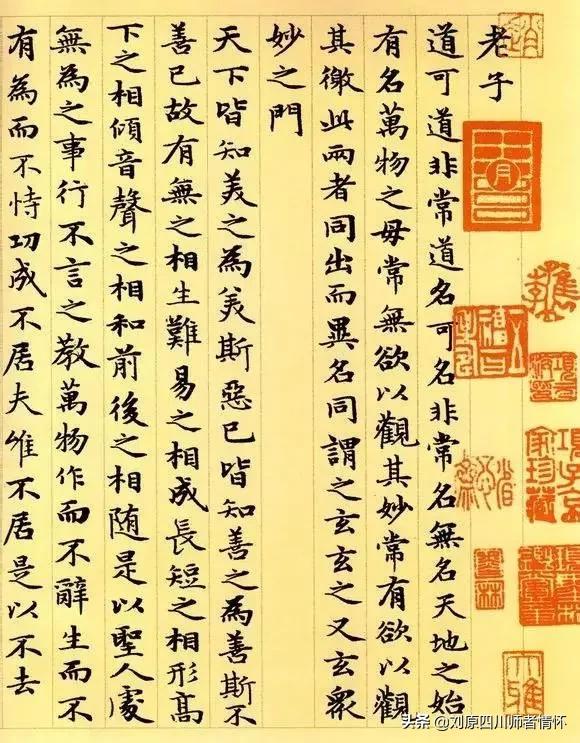 老子
道可道非常道名可名非常名無名天地之始
有名萬物之母常無欲以觀其妙常有欲以觀
其徼此兩者同出而異名同謂之玄玄之又玄眾
妙之門
天下皆知美之為美斯惡已皆知善之為善斯不
善已故有無之相生難易之相成長短之相形高
下之相傾音聲之相和前後之相随是以聖人處
無為之事行不言之教萬物作而不辭生而不
有為而不恃功成不居夫唯不居是以不去
項子京
家珍藏
头条 @刘原四川师者情怀